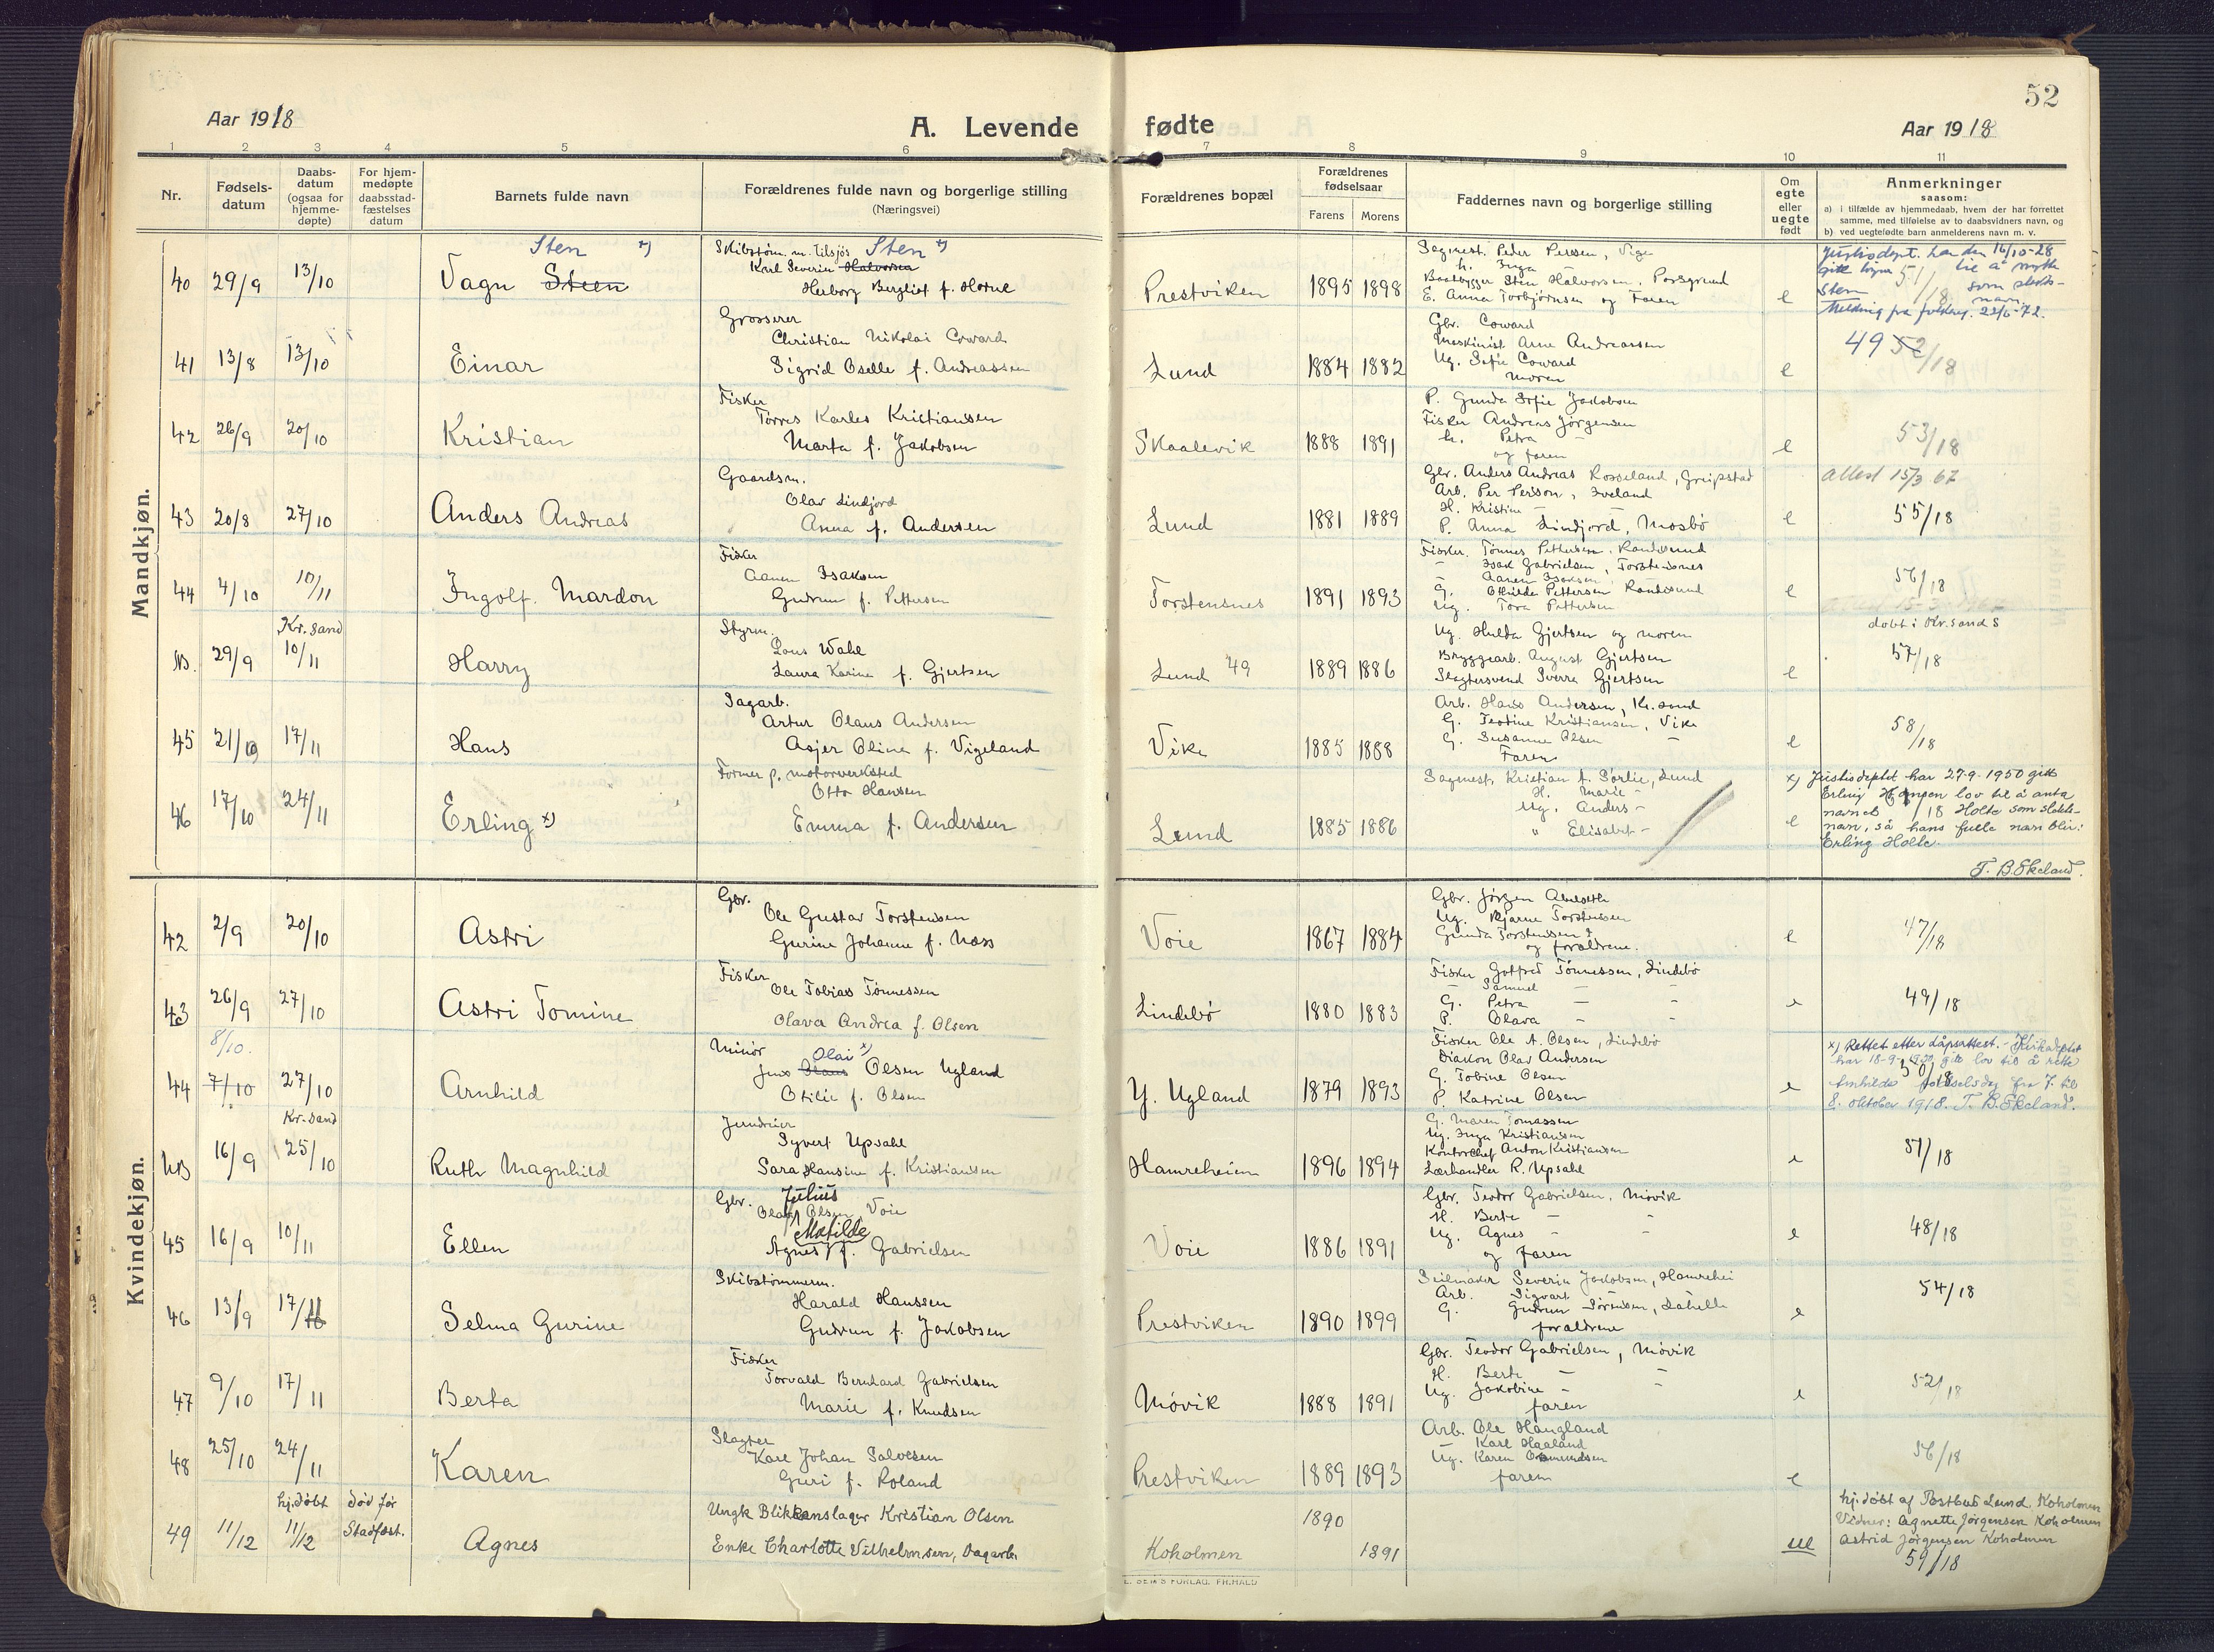 52
Aar 1918
A. Levende fødte
Aar 1918
1 2 3 4 5 6 7 8 9 10 11
Nr.
Fødsels-
datum
Daabs-
datum
(ogsaa for
hjemme-
døpte)
For hjem-
medøpte
daabsstad-
fæstelses
datum
Barnets fulde navn
Forældrenes fulde navn og borgerlige stilling
(Næringsvei)
Forældrenes bopæl
Forældrenes
fødselsaar
Farens Morens
Faddernes navn og borgerlige stilling
Om
egte
eller
uegte
født
Anmerkninger
saasom:
a) i tilfælde av hjemmedaab, hvem der har forrettet
samme, med tilføielse av to daabsvidners navn, og
b) ved uegtefødte barn anmelderens navn m. v.
Mandkjøn.
40 29/9 13/10
Sten x)
Vagn Steen
Skibstøm. m. tilsjøs Sten x)
Karl Severin Halvorsen
Herborg Bergliot f. Horne
Prestviken 1895 1898
Sagmest. Peder Persen, Vige
h. Inga
Baatbygger Sten Halvorsen, Porsgrund
E. Anna Torbjørnsen og Faren
e
Justisdept. har den 16/10-28
gitt lov til å nytte
Sten som slekts-
navn.
51/18
Melding fra folkereg. 22/6-72.
41 13/8 13/10 Einar
Grosserer
Christian Nikolai Coward
Sigrid Oselle f. Andreassen
Lund 1884 1882
Gbr. Coward
Maskinist Arne Andreassen
Ug. Sofie Coward
moren
e
49 52/18
42 26/9 20/10 Kristian
Fisker
Torres Karles Kristianssen
Marta f. Jakobsen
Skaalevik 1888 1891
P. Gunda Sofie Jakobsen
Fisker Andreas Jørgensen
h. Petra —
og faren
e
53/18
43 20/8 27/10 Anders Andreas
Gaardsm.
Olav Lindjord
Anna f. Andersen
Lund 1881 1889
Gbr. Anders Andreas Rosseland, Greipstad
Arb. Per Persson, Iveland
H. Kristine —
P. Anna Lindjord, Mosbø
e
Attest 15/3 67
55/18
44 4/10 10/11 Ingolf Mardon
Fisker
Aanen Isaksen
Gudrun f. Pettersen
Torstensnes 1891 1893
Fisker. Tønnes Pettersen, Randesund
— Isak Gabrielsen, Torstensnes
— Aanen Isaksen,
G. Othilde Pettersen Randesund
Ug. Tora Pettersen
e
56/18
NB. 29/9
Kr.sand
10/11 Harry
Styrm.
Lous Wahl
Laura Karine f. Gjertsen
Lund 49 1889 1886
Ug. Hulda Gjertsen og moren
Bryggearb. August Gjertsen
Slagtersvend Sverre Gjertsen
e
døbt i Kr.sand S
57/18
45 21/10 17/11 Hans
Sagarb.
Artur Olaus Andersen
Asjer Oline f. Vigeland
Vike 1885 1888
Arb. Hans Andersen, Kr.sand
G. Teodine Kristiansen, Vike
G. Susanne Olsen —
Faren
e
58/18
46 17/10 24/11 Erling x)
Former p. motorverksted
Otto Hansen
Emma f. Andersen
Lund 1885 1886
Sagmest. Kristian f. Sørlie, Lund
H. Marie —
Ug. Anders —
" Elisabet —
e
x) Justisdeptet har 27-9-1950 gitt
Erling Hansen lov til å anta
navnet Holte som slekts-
navn, så hans fulle navn blir:
Erling Holte.
T. B. Ekeland.
Kvindekjøn.
42 2/9 20/10 Astri
Gbr.
Ole Gustav Torstensen
Gurine Johanne f. Næss
Voie 1867 1884
Gbr. Jørgen Abelseth
Ug. Bjarne Torstensen
Gunda Torstenssen
og forældrene.
e
47/18
43 26/9 27/10 Astri Tomine
Fisker
Ole Tobias Tønnessen
Olava Andrea f. Olsen
Lindebø 1880 1883
Fisker Gotfred Tønnessen, Lindebø
— Samuel —
G. Petra — —
P. Olava — —
e
49/18
8/10.
44 7/10 27/10 Arnhild
Minør Olai x)
Jens Olaus Olsen Ugland
Otilie f. Olsen
Y. Ugland 1879 1893
Fisker Ole A. Olsen, Lindebø
Diakon Olav Andersen
G. Tobine Olsen
P. Katrine Olsen
e
x) Rettet etter dåpsattest. - Kirkedeptet
har 18-9-1950 gitt lov til å rette
Arnhilds fødselsdag fra 7. til
8. oktober 1918. T. B. Ekeland.
50/18
NB 16/9
Kr.sand
25/10 Ruth Magnhild
Jerndreier
Syvert Upsahl
Sara Hansine f. Kristiansen
Hamreheien 1896 1894
G. Maren Tomassen
Ug. Inga Kristiansen
Kontorchef Anton Kristiansen
Lærhandler R. Upsahl
e
51/18
45 16/9 10/11 Ellen
Gbr. Julius
Olaf Olsen, Voie
Matilde
Agnes f. Gabrielsen
Voie 1886 1891
Gbr. Teodor Gabrielsen, Møvik
H. Berte — —
Ug. Agnes —
og faren
e
48/18
46 13/9 17/11 Selma Gurine
Skibstømmerm.
Harald Hanssen
Gudrun f. Jakobsen
Prestviken 1890 1899
Seilmaker Severin Jakobsen, Hamrehei
Arb. Sigvart
G. Gudrun Sørensen,
forældrene
e
54/18
47 9/10 17/11 Berta
Fisker
Torvald Bernhard Gabrielsen
Marie f. Knudsen
Møvik 1888 1891
Gbr. Teodor Gabrielsen, Møvik
H. Berte — —
Ug. Jakobine — —
faren
e
52/18
48 25/10 24/11 Karen
Slagter
Karl Johan Salvesen
Guri f. Roland
Prestviken 1889 1893
Arb. Ole Haugland
— Karl Haaland
Ug. Karen Osmundsen
faren
e
56/18
49 11/12
hj.døbt
11/12
død før
Stadfæst.
Agnes
Ungk Blikkenslager Kristian Olsen
Enke Charlotte Vilhelmsen, Dagarb.
Koholmen 1890
1891
ue
hj.døbt af Postbud Lund, Koholmen
Vidner: Agnette Jørgensen Koholmen
Astrid Jørgensen Koholmen
59/18